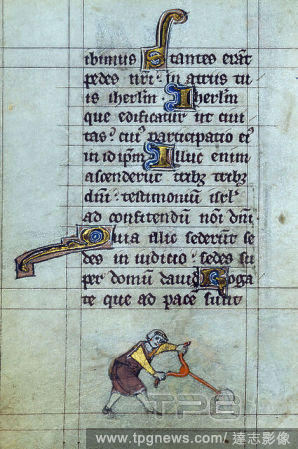 ibimus Stantes erāt
pedes nr̄i: in atriis tu
is iherlm̄. Iherlm̄
que edificatur ut ciui
tas: cui' participatio ei'
in idip̄m. Illuc enim
ascenderūt tribꝫ tribꝫ
dn̄i: testimonium isrl'
ad confitendū noī dn̄i.
Quia illic sederūt se
des in iuditio: sedes su
per domū dauid Roga
te que ad pacē sunt
TPG
www.tpgnews.com/達志影像